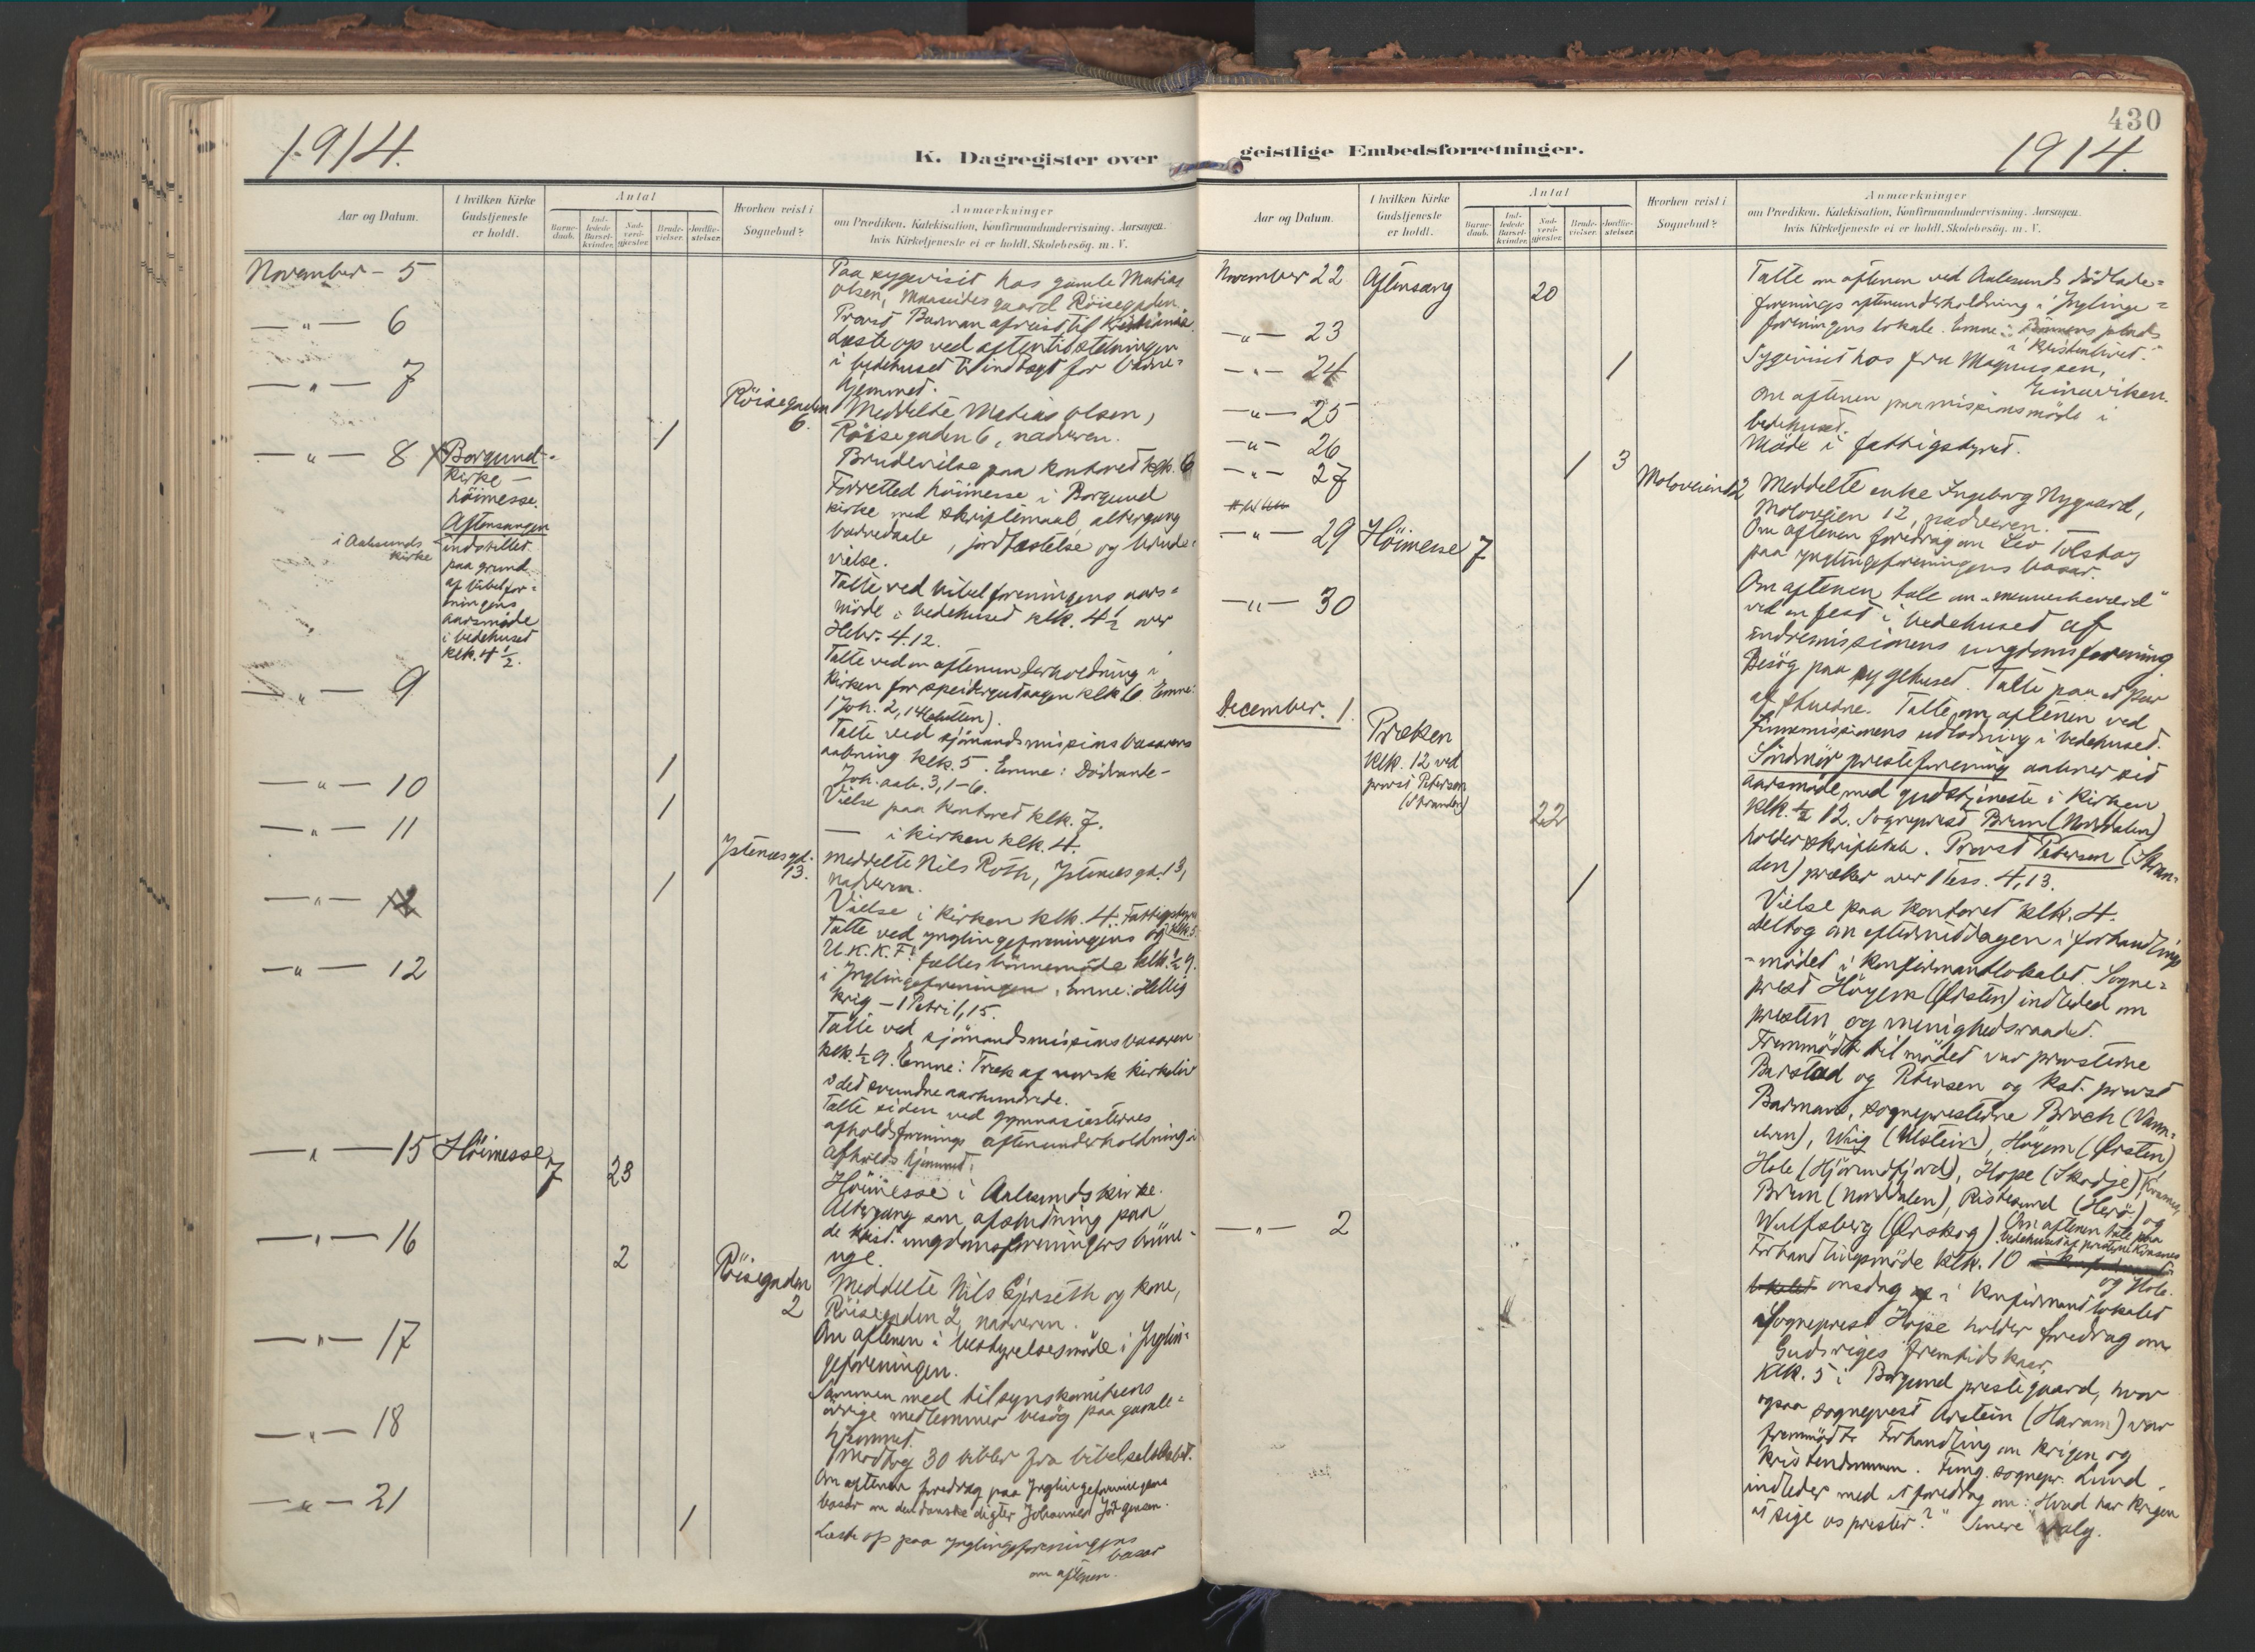 1914.
K. Dagregister over
Aar og Datum.
I hvilken Kirke
Gudstjeneste
er holdt.
Antal
Barne-
daab.
Ind-
ledede
Barsel-
kvinder.
Nad-
verd-
gjester.
Brude-
vielser.
Jordfæ-
stelser.
Hvorhen reist i
Sognebud?
Anmærkninger
om Prædiken, Katekisation, Konfirmandundervisning. Aarsagen,
hvis Kirketjeneste ei er holdt. Skolebesøg. m. V.
November - 5
Paa sygevisit hos gamle Matias
Olsen, gaard Röisegaden.
— " — 6
Provst Barman afreist til Kristiania.
Læste op ved
i bedehuset til indtægt for barne-
hjemmet.
— " — 7
Röisegaden
6.
Meddelte Matias Olsen,
Röisegaden 6, nadveren.
1
Brudevielse paa kontoret klk. 6
— " — 8
Borgund
Kirke —
höimesse.
Aftensangen
i Aalesunds
Kirke
indstillet
paa grund
af bibelfor-
eningens
aarsmøde
i bedehuset
klk. 4 ½.
Forrettet höimesse i Borgund
kirke med skriftemaal, altergang
barnedaab, jordfæstelse og brude-
vielse.
Talte ved bibelforeningens aars-
møde i bedehuset klk. 4 ½ over
Hebr. 4.12.
Talte ved en aftenunderholdning i
kirken for speidergutterne klk 6. Emne:
1 Joh. 2, 14
— " — 9
Talte ved sjömandsmissionsbasarens
aabning klk. 5. Emne:
Joh. aab. 3, 1-6.
1
Vielse paa kontoret klk. 7.
— " — 10
1
— i kirken klk. 4.
— " — 11
Ystenesgd.
13.
Meddelte Nils Roth, Ystenesgd. 13,
nadveren.
1
Vielse i kirken klk. 4. Fattigstyre
klk. 5.
Talte ved ynglingeforeningens og
U.K.K.F.s fælles bönnemöde klk. ½ 9.
i Ynglingeforeningen. Emne: Hellig
krig — 1 Petri 1, 15.
— " — 12
Talte ved sjömandsmissionsbasaren
klk. ½ 9. Emne: Træk af norsk kirkeliv
i det svundne aarhundrede.
Talte siden ved gymnasiasternes
afholdsforenings aftenunderholdning i
Afholdshjemmet.
— " — 15 Höimesse 7 23
Höimesse i Aalesunds kirke.
Altergang som afslutning paa
de krist. ungdomsforeningers bönne-
uge.
— " — 16
2
Röisegaden
2
Meddelte Nils Gjerseth og kone,
Röisegaden 2, nadveren.
Om aftenen i bestyrelsesmöde i Ynglin-
geforeningen.
— " — 17
Sammen med tilsynskomiteens
övrige medlemmer besög paa gamle-
hjemmet.
— " — 18
Modtog 30 bibler fra bibelselskabet.
Om aftenen foredrag paa Ynglingeforeningens
basar om den danske digter Johannes Jörgensen.
— " — 21
1
Læste op paa ynglingeforeningens
basar
om aftenen.
430
geistlige Embedsforretninger.
1914.
Aar og Datum.
I hvilken Kirke
Gudstjeneste
er holdt.
Antal
Barne-
daab.
Ind-
ledede
Barsel-
kvinder.
Nad-
verd-
gjester.
Brude-
vielser.
Jordfæ-
stelser.
Hvorhen reist i
Sognebud?
Anmærkninger
om Prædiken, Katekisation, Konfirmandundervisning. Aarsagen,
hvis Kirketjeneste ei er holdt. Skolebesøg. m. V.
November 22 Aftensang 20
Talte om aftenen ved Aalesunds
forenings aftenunderholdning i Ynglinge-
foreningens lokale. Emne: Bönnens plads
i kristenlivet."
— " — 23
Sygevisit hos fru Magnussen,
— " — 24
1
Om aftenen paa missionsmöde i
bedehuset.
— " — 25
Möde i fattigstyret.
— " — 26
— " — 27
1 3
Moloveien 12
Meddelte enke Ingeborg Nygaard,
Moloveien 12, nadveren.
Om aftenen foredrag om Leo Tolstoy
paa ynglingeforeningens basar.
— " — 29 Höimesse 7
Om aftenen tale om "menneskeværd"
ved en fest i bedehuset af
indremissionens ungdomsforening
— " — 30
Besög paa sygehuset. Talte paa et par
af stuerne. Talte om aftenen ved
Finnemissionens udlodning i bedehuset.
December. 1.
Præken
klk. 12 ved
provst Petersen
(Stranden)
22
Söndmör presteforening aabner sit
aarsmøde med gudstjeneste i kirken
klk. ½ 12. Sogneprest Brun (Norddalen)
holder skriftetale. Provst Petersen (Stran-
den) præker over 1 Tess. 4, 13.
1
Vielse paa kontoret klk. 4.
Deltog om eftermiddagen i forhandlings
-mödet i konfirmandlokalet. Sogne-
prest Höyem (Örsten) indleded om
presten og menighedsraadet.
Fremmödt til mödet var provsterne
Barstad og Petersen og kst. provst
Barman, sognepresterne Broch (Vann-
elven), (Ulstein), Höyem (Örsten),
Hole (Hjörundfjord), Hope (Skodje),
Brun (Norddalen), Ristesund (Herö) og
Wulfsberg (Örskog). Om aftenen tale paa
bedehuset af presterne
og Hole.
— " — 2
Forhandlingsmöde klk. 10
onsdag i konfirmandlokalet
Sogneprest Hope holder foredrag om
Gudsriges fremtidskaar.
Klk. 5 i Borgund prestegaard, hvor
ogsaa sogneprest Arstein (Haram) var
fremmödt. Forhandling om krigen og
kristendommen. Fung. sognepr. Lund
indleder med et foredrag om: "Hvad har krigen
at sige os prester?" Senere valg.